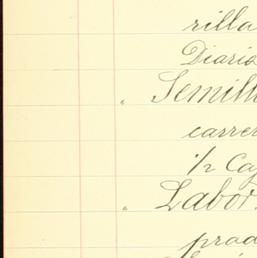 rilla
Diario
" Semill
carre
1/2 Caj
" Labor.
prod